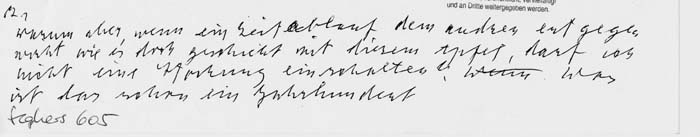 und an Dritte weitergegeben werden.
12.)
warum aber, wenn ein Zeitablauf dem andren entgegen
wie es doch geschieht mit diesem Apfel, darf ich
nicht eine einschalten? wenn was
ist das schon ein Jahrhundert
Seghers 605